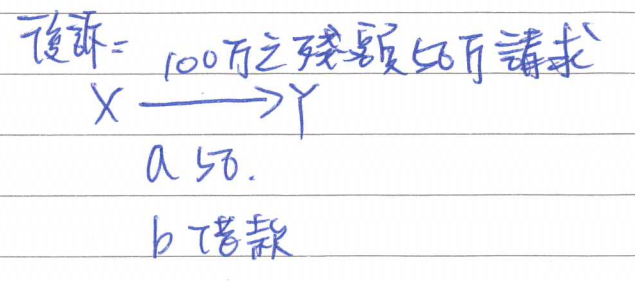 後訴=
100万之殘額50万請求
X → Y
a 50.
b 借款